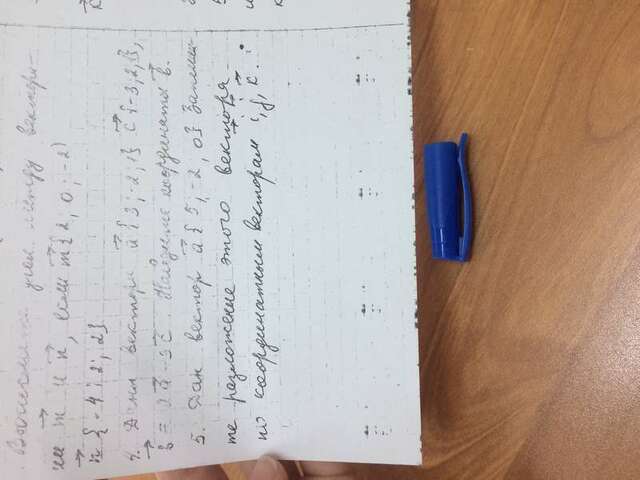 Вычислите угол между вектора-
ми m⃗ и n⃗, если m⃗{2; 0; -2}
n⃗ {-4; 2; 2}
4. Даны вектора a⃗ {3; -2; 1} c⃗ {-3,2,1},
b⃗ = 2a⃗ - 3c⃗. Найдите координаты b⃗.
5. Дан вектор a⃗ {5; -2, 0} Запиши-
те разложение этого вектора
по координатным векторам i⃗, j⃗, k⃗.